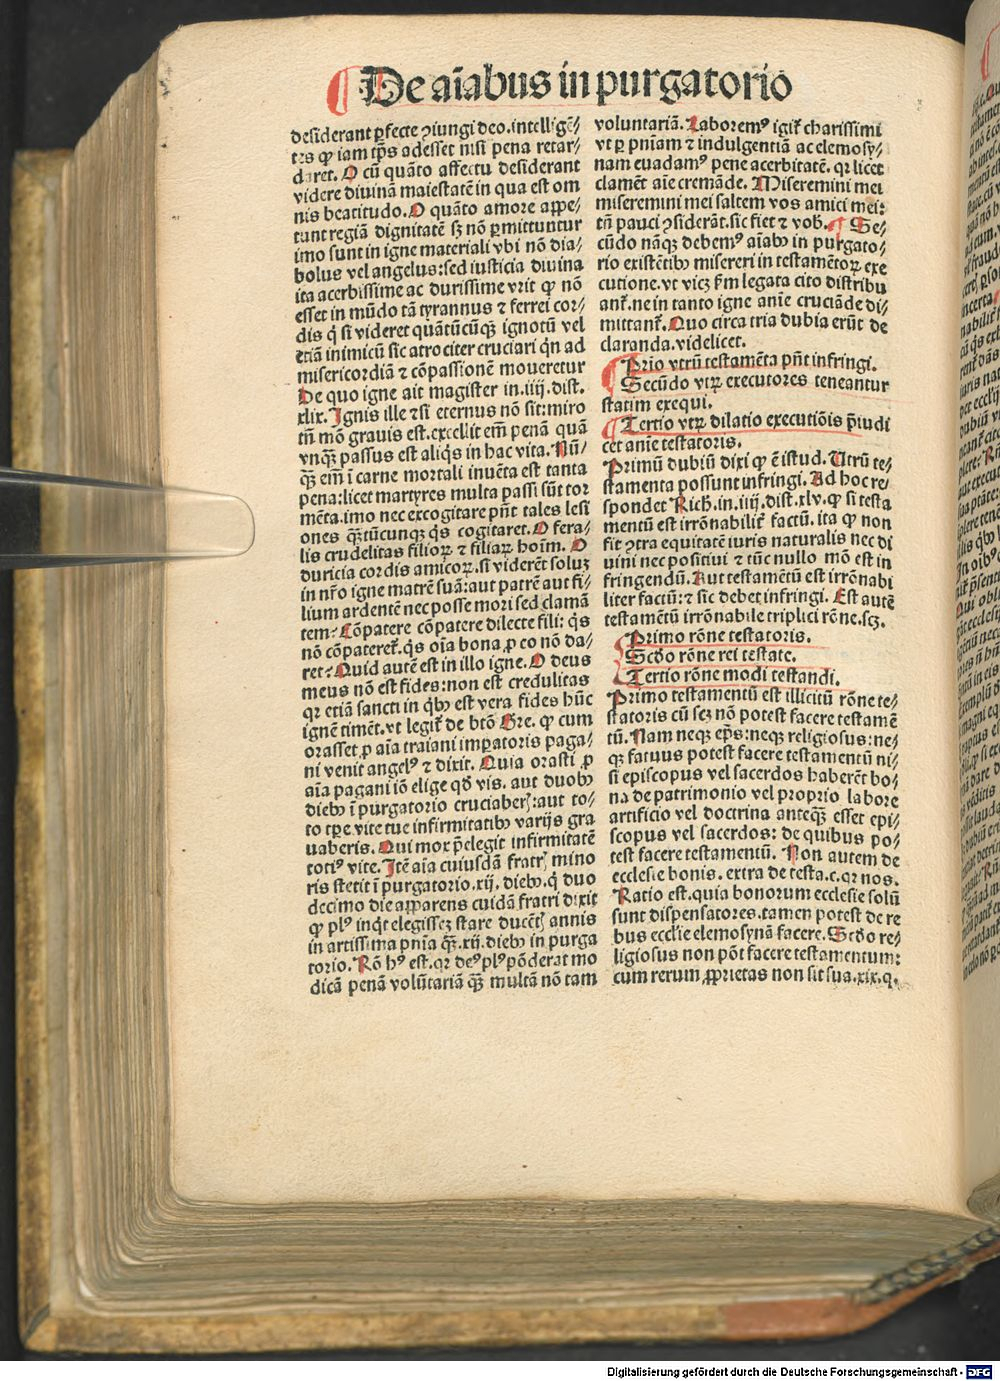 De aīabus in purgatorio
desiderant ꝑfecte ꝯiungi deo.intelligē⸗
tes ꝙ iam tꝑs adesset nisi pena retar⸗
daret. O cū quāto affectu desiderant
videre diuinā maiestatē in qua est om
nis beatitudo. O quāto amore appe⸗
tunt regiā dignitatē sꝫ nō ꝑmittuntur
imo sunt in igne materiali vbi nō dia⸗
bolus vel angelus:sed iusticia diuina
ita acerbissime ac durissime vrit ꝙ nō
esset in mūdo tā tyrannus ⁊ ferrei cor⸗
dis q̇ si videret quātūcūqꝫ ignotū vel
etiā inimicū sic atrociter cruciari qn̄ ad
misericordiā ⁊ cōpassionē moueretur
De quo igne ait magister in.iiij.dist.
xlix. Ignis ille ⁊si eternus nō sit:miro
tn̄ mō grauis est.excellit em̄ penā quā
vnqꝫ passus est aliqs in hac vita. Nū⸗
qꝫ em̄ ī carne mortali inuēta est tanta
pena:licet martyres multa passi sūt tor
mēta.imo nec excogitare pn̄t tales lesi
ones qꝫtūcunqꝫ qs cogitaret. O fera⸗
lis crudelitas filioꝝ ⁊ filiaꝝ hoīm. O
duricia cordis amicoꝝ.si viderēt soluꝫ
in nr̄o igne matrē suā:aut patrē aut fi⸗
lium ardentē nec posse mori sed clamā
tem: Cōpatere cōpatere dilecte fili: qs
nō cōpateret᷑.qs oīa bona ꝓ eo nō da⸗
ret: Quid autē est in illo igne. O deus
meus nō est fides:non est credulitas
qꝛ etiā sancti in qbꝰ est vera fides hūc
ignē timēt.vt legit᷑ de btō Gre. ꝙ cum
orasset ꝓ aīa traiani imꝑatoris paga⸗
ni venit angelꝰ ⁊ dixit. Quia orasti ꝓ
aīa pagani iō elige qd̄ vis. aut duobꝰ
diebꝰ ī purgatorio cruciaberꝭ:aut to⸗
to tꝑe vite tue infirmitatibꝰ varijs gra
uaberis. Qui mox p̄elegit infirmitatē
totiꝰ vite. Itē aīa cuiusdā fratrꝭ mino
ris stetit ī purgatorio.xij. diebꝰ.q̄ duo
decimo die apparens cuidā fratri dixit
ꝙ plꝰ inq̇t elegissez stare ducētꝭ annis
in artissima pn̄ia qꝫ.xij.diebꝰ in purga
torio. Rō hꝰ est.qꝛ deꝰ plꝰ pōderat mo
dicā penā volūtariā qꝫ multā nō tam
voluntariā. Laboremꝰ igit᷑ charissimi
vt ꝑ pn̄iam ⁊ indulgentiā ac elemosy⸗
nam euadamꝰ pene acerbitatē. qꝛ licet
clamēt aīe cremāde. Miseremini mei
miseremini mei saltem vos amici mei:
tn̄ pauci ꝯsiderāt.sic fiet ⁊ vob̄. ¶ Se⸗
cūdo nāqꝫ debemꝰ aīabꝰ in purgato⸗
rio existētibꝰ misereri in testamētoꝝ exe
cutione.vt vicꝫ fm legata cito distribu
ant᷑.ne in tanto igne anīe cruciāde di⸗
mittant᷑. Quo circa tria dubia erūt de
claranda.videlicet.
¶ Prīo vtrū testamēta pn̄t infringi.
Secūdo vtꝝ executores teneantur
statim exequi.
¶ Tertio vtꝝ dilatio executiōis p̄iudi
cet anīe testatoris.
Primū dubiū dixi ꝙ ē istud. Utrū te⸗
stamenta possunt infringi. Ad hoc re
spondet Rich.in.iiij.dist.xlv. ꝙ si testa
mentū est irrōnabilit᷑ factū. ita ꝙ non
fit ꝯtra equitatē iuris naturalis nec di
uini nec positiui ⁊ tūc nullo mō est in
fringendū. Aut testamētū est irrōnabi
liter factū: ⁊ sic debet infringi. Est autē
testamētū irrōnabile triplici rōne.scꝫ.
Primo rōne testatoris.
Scd̄o rōne rei testate.
Tertio rōne modi testandi.
Primo testamentū est illicitū rōne te⸗
statoris cū scꝫ nō potest facere testamē
tū. Nam neqꝫ ep̄s:neqꝫ religiosus:ne⸗
qꝫ fatuus potest facere testamentū ni⸗
si episcopus vel sacerdos haberēt bo⸗
na de patrimonio vel proprio labore
artificio vel doctrina anteqꝫ esset epi⸗
scopus vel sacerdos: de quibus po⸗
test facere testamentū. Non autem de
ecclesie bonis. extra de testa.c.qꝛ nos.
Ratio est.quia bonorum ecclesie solū
sunt dispensatores.tamen potest de re
bus eccl̄ie elemosynā facere. Scd̄o re⸗
ligiosus non pōt facere testamentum:
cum rerum ꝓprietas non sit sua.xix.q.
Digitalisierung gefördert durch die Deutsche Forschungsgemeinschaft - DFG